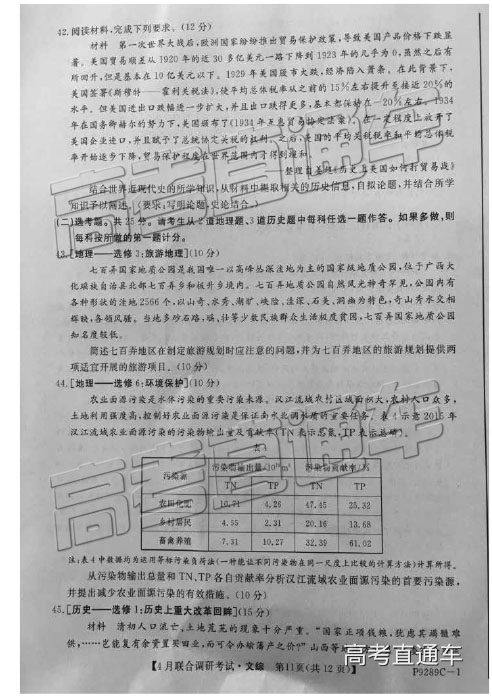 42.阅读材料,完成下列要求。(12分)
材料 第一次世界大战后,欧洲国家纷纷推出贸易保护政策,导致美国产品价格下跌显
著。美国贸易顺差从1920年的近30多亿美元一路下降到1923年的几乎为0,虽然之后有
所回升,但是基本在10亿美元以下。1929年美国股市大跌,经济陷入萧条。在此背景下,
美国签署《斯穆特—霍利关税法》,使平均总体税率从之前的15%左右提升至接近20%的
水平。但美国进出口跌幅进一步扩大,并且出口跌得更多,基本都保持在-20%左右。1934
年在国务卿赫尔的努力下,美国颁布了《1934年互惠贸易协定法案》,在一定程度上放开了
美国企业进口,并且赋予了总统协定关税的权利。之后,美国的平均关税税率和平均总体税
率开始逐步下降,贸易保护程度在世界范围内才得到缓和。
——整理自姜超《历史上美国如何打贸易战》
结合世界近现代史的所学知识,从材料中提取相关的历史信息,自拟论题,并结合所学
知识予以阐述。(要求:写明论题,史论结合。)
(二)选考题。共25分。请考生从2道地理题、3道历史题中每科任选一题作答。如果多做,则
每科按所做的第一题计分。
43.[地理——选修3:旅游地理](10分)
七百弄国家地质公园是我国唯一以高峰丛深洼地为主的国家级地质公园,位于广西大
化瑶族自治县北部七百弄乡和板升乡境内。七百弄地质公园自然风光神奇罕见,公园内有
各种形状的洼地2566个,以山奇、水秀、湖旷、峡险、洼深、石美、洞幽为特色,奇山秀水交相
辉映,各领风骚。当地多砂石路,瑶、壮等少数民族群众生活极度贫困,七百弄国家地质公园
知名度较低。
简述七百弄地区在制定旅游规划时应注意的问题,并为七百弄地区的旅游规划提供两
项适宜开展的旅游项目。(10分)
44.[地理——选修6:环境保护](10分)
农业面源污染是水体污染的重要污染来源。汉江流域农村区域面积大,农村人口众多,
土地利用强度高,控制好农业面源污染是保证南水北调水质的重要任务。表4示意2015年
汉江流域农业面源污染的污染物输出量及贡献率(TN表示总氮,TP表示总磷)。
表4
污染源 污染物输出量/10¹⁰m³ 污染物贡献率/%
TN TP TN TP
农田化肥 10.71 4.26 47.45 25.32
乡村居民 4.55 2.31 20.16 13.68
畜禽养殖 7.31 10.27 32.39 61.02
注:表4中数据均为运用等标污染负荷法(一种能让不同污染物在同一尺度上比较的方法)计算所得。
从污染物输出总量和TN、TP各自贡献率分析汉江流域农业面源污染的首要污染源,
并提出减少农业面源污染的有效措施。(10分)
45.[历史——选修1:历史上重大改革回眸](15分)
材料 清初人口流亡,土地荒芜的现象十分严重。“国家正项钱粮,犹虑其蹒跚难
供,……岂能复有余资置买田业,而可令办输藩产之价?”山西等地
【4月联合调研考试·文综 第11页(共12页)】
P9289C—1
高考直通车
高考直通车
高考直通车
高考直通车